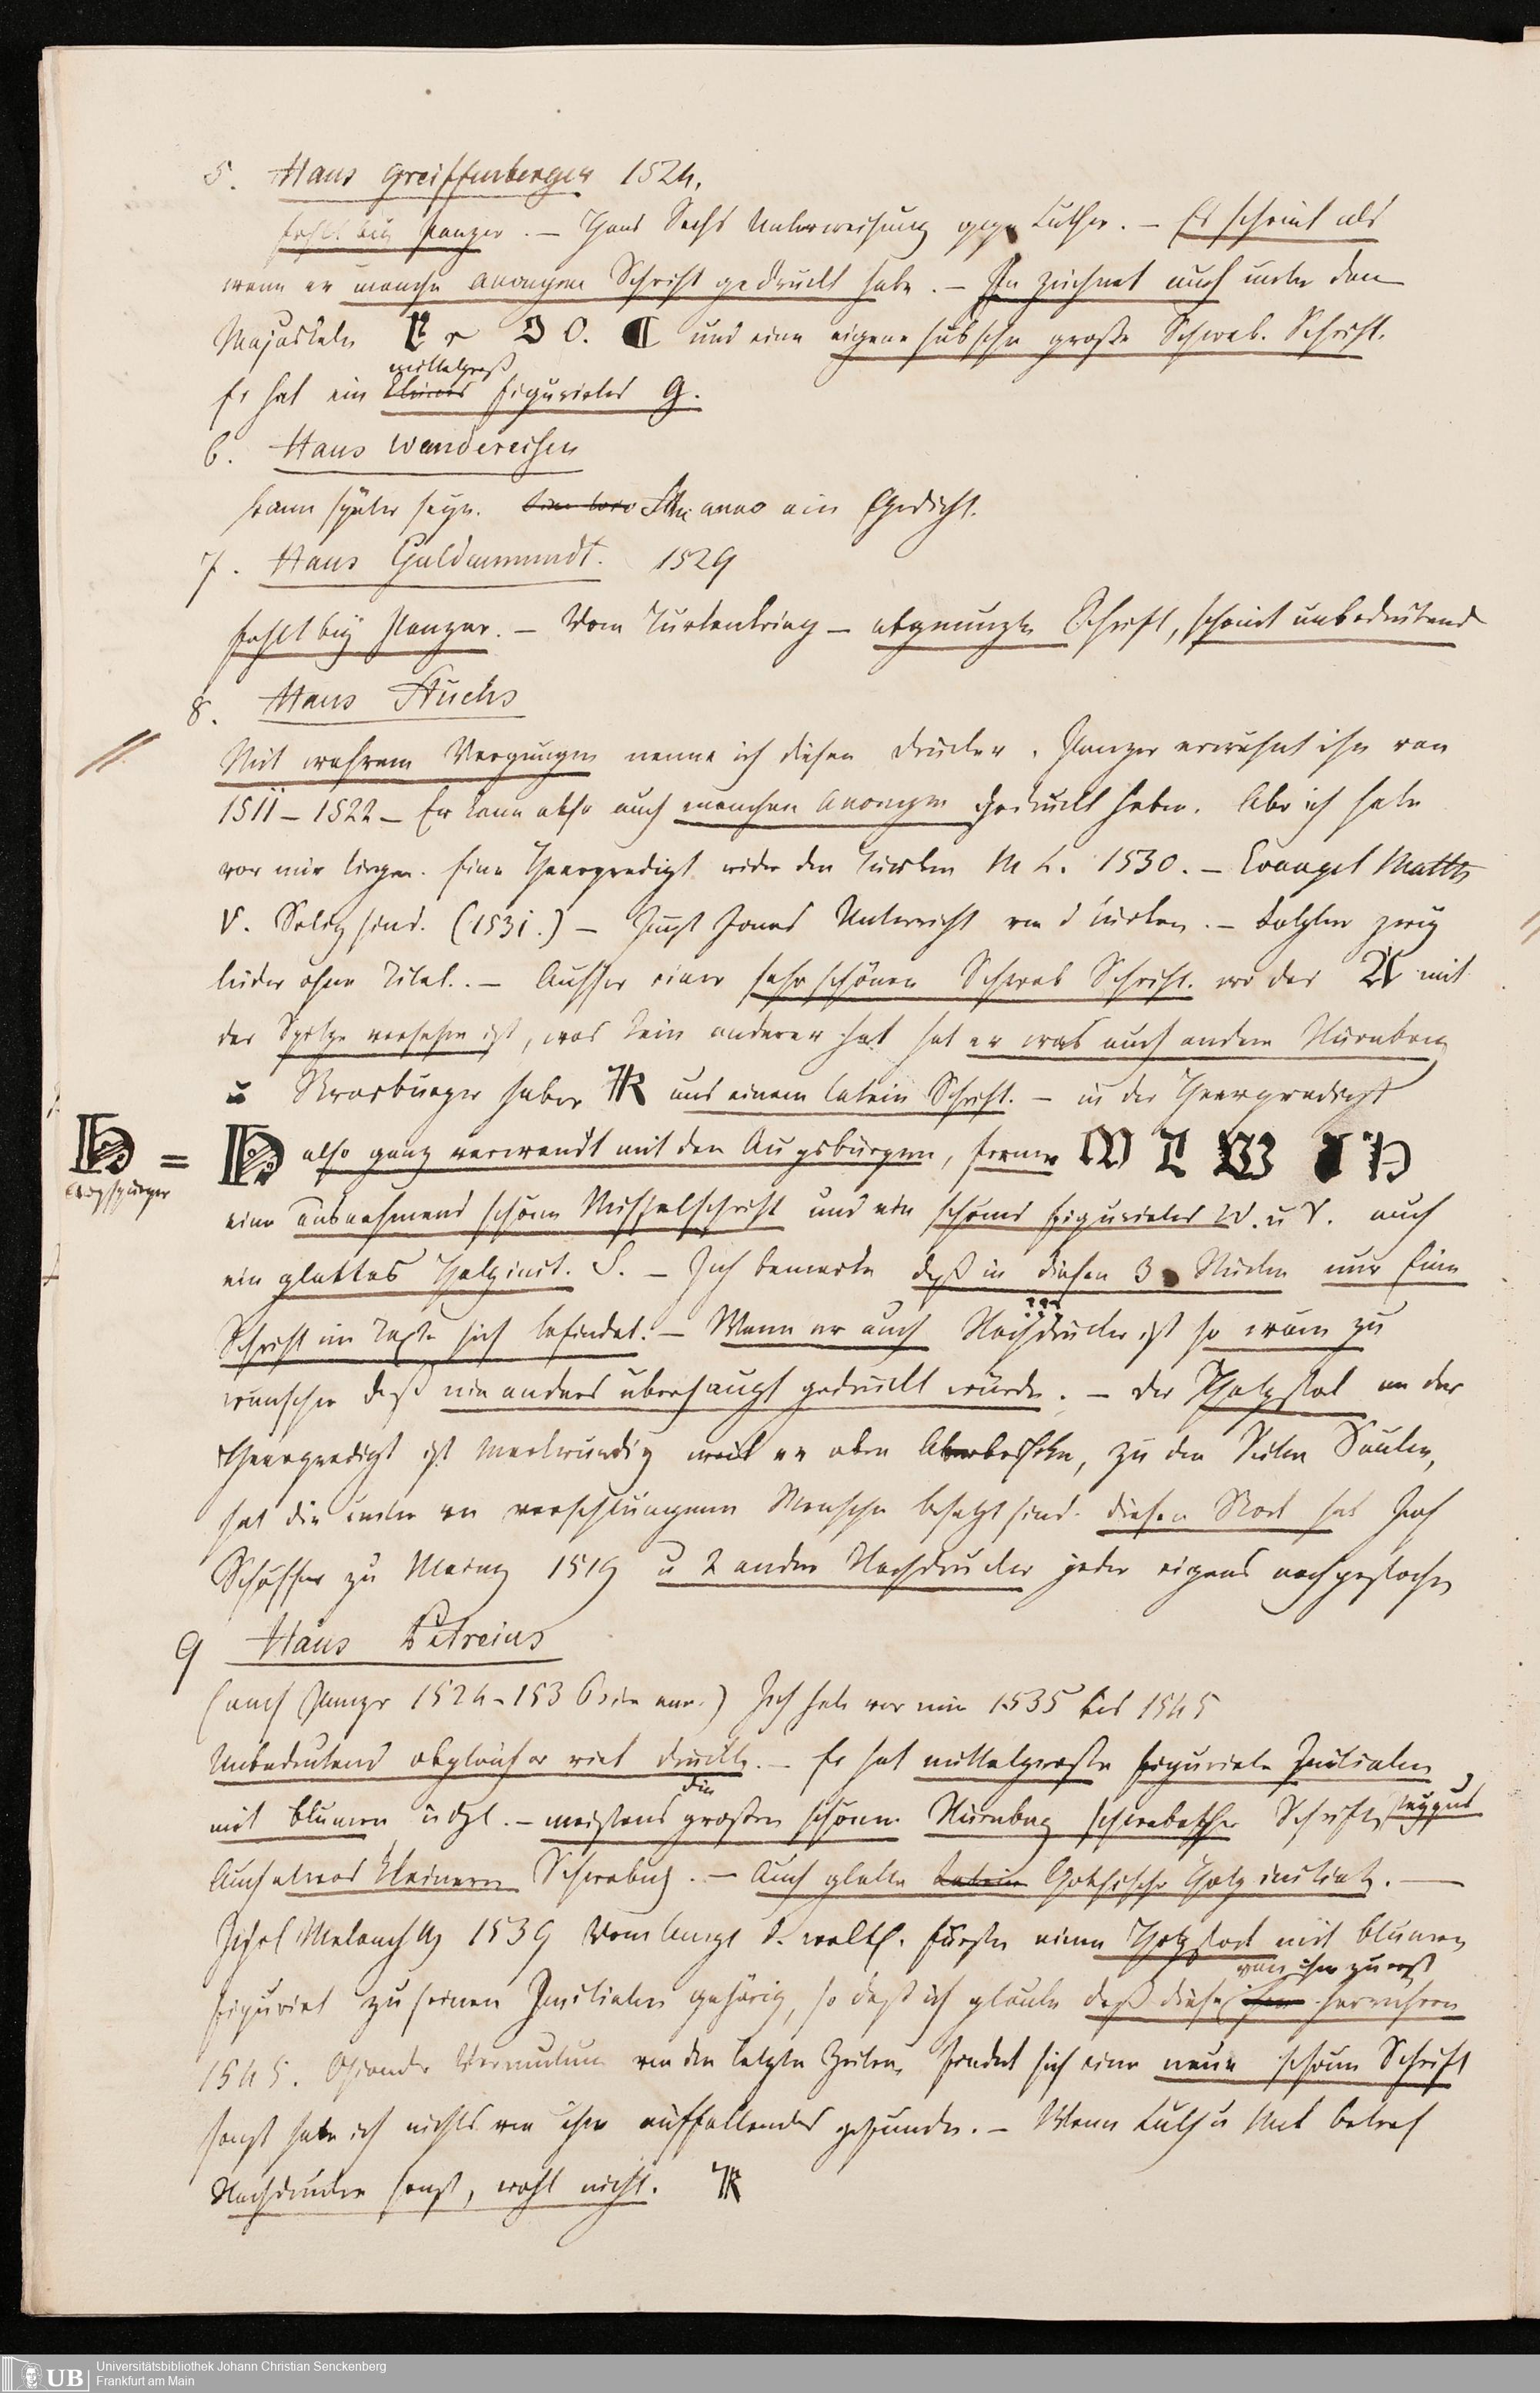 5. Hans Greiffenberger 1524.
fehlt bey Panzer. – Hans Sachs Unterweisung gegen Luther. – Es scheint als
wenn er manche anonyme Schrift gedruckt habe. – Er zeichnet auch unter den
Majuskeln und eine eigene hübsche große Schwab. Schrift.
mittelgroß
Er hat ein kleines figurirtes G.
6. Hans Wandereisen
kann später seyn. Sine loco Sine anno ein Gedicht.
7. Hans Guldenmundt. 1529
fehlt bey Panzer. – Vom Turkenkrieg – abgenuzte Schrift, scheint unbedeutend
8. Hans Stuchs
Mit wahrem Vergnugen nenne ich diesen Drucker. Panzer erwähnt ihn von
1511 – 1522 – Er kann also auch manchen Anonymen gedruckt haben. Aber ich habe
vor mir liegen. Eine Heerpredigt wider den Türken M L. 1530. – Evangel Matth
V. Selig sind. (1531.) – Just Jonas Unterricht von d Türken. – Letzter zwey
leider ohne Titel. – Ausser einer sehr schönen Schwab Schrift. wo das A mit
der Spitze versehen ist, was kein anderer hat hat er was auch andere Nürnberg
u Strasburger haben R und einem latein Schrift. – in der Heerpredigt
H = H also ganz verwandt mit den Augsburgern, ferner M L W I H
Augspurger
eine ausnehmend schöne Missalschrift und ein schönes figurirtes W. u V. auch
ein glattes Holzinit. S. – Ich bemerke daß in diesen 3 Stücken nur Eine
???
Schrift im Texte sich befindet. – Wenn er auch Nachdrucker ist so wäre zu
wünschen daß nie anders überhaupt gedruckt würde. – Der Holzstok an der
Heerpredigt ist merkwürdig weil er oben, zu den Seiten Säulen,
hat die unten verschlungenen Menschen besetzt sind. diesen Stock hat Joh
Schöffer zu Mainz 1519 u 2 andere Nachdrucker jeder eigens nachgestochen
9 Hans Petreius
(nach Panzer 1524–1536) Ich habe vor mir 1535 bis 1545
Unbedeutend obgleich er viel druckte. – Er hat mittelgroße figurirte Initialen
die
mit Blumen u dgl. – meistens großen schönen Nürnberg schwabacher Schrift
Auch etwas kleinere Schwabach. – Auch glatte Latein Gothische Holz initial. –
Melanchth 1539 Vom Ampt d. weltl. Fürsten einen Holzstock mit Blumen
von ihm zuerst
figurirt zu seinen Initialen gehörig, so daß ich glaube daß diese herrühren
1545. Osiander Vermutung von den letzten Zeiten, findet sich eine neue schöne Schrift
sonst habe ich nichts von ihm auffallendes gefunden. – Wenn Luth u Mel betref
Nachdrucker sonst, wohl nicht. R
Universitätsbibliothek Johann Christian Senckenberg
Frankfurt am Main
UB